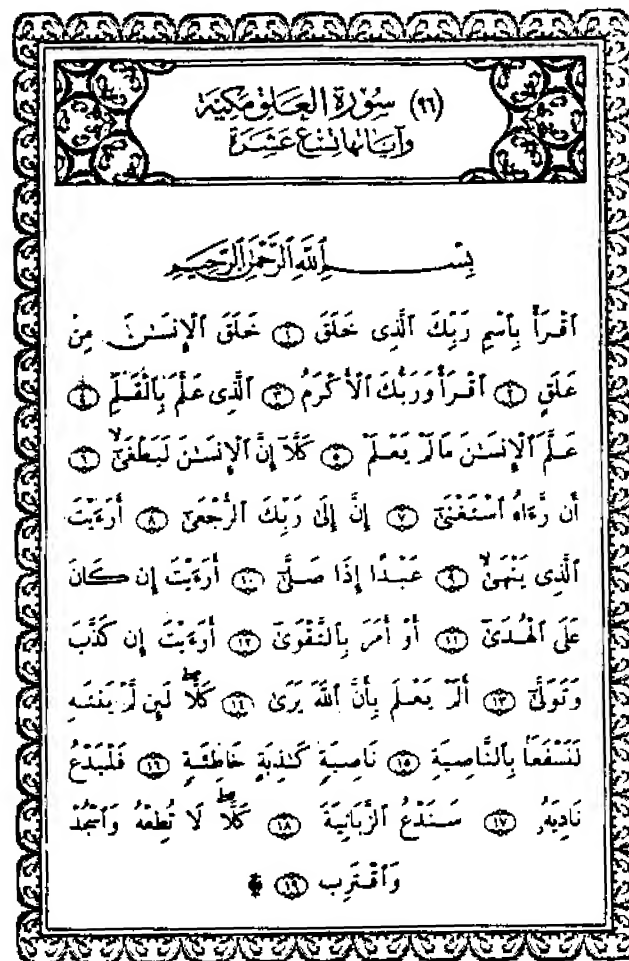 (٩٦) سُورَةُ العَلَق مَكيّة
وَآيَاتُهَا تِسْعَ عَشرَة
بِسْمِ ٱللَّهِ ٱلرَّحْمَٰنِ ٱلرَّحِيمِ
ٱقْرَأْ بِٱسْمِ رَبِّكَ ٱلَّذِى خَلَقَ ۝١ خَلَقَ ٱلْإِنسَٰنَ مِنْ
عَلَقٍ ۝٢ ٱقْرَأْ وَرَبُّكَ ٱلْأَكْرَمُ ۝٣ ٱلَّذِى عَلَّمَ بِٱلْقَلَمِ ۝٤
عَلَّمَ ٱلْإِنسَٰنَ مَا لَمْ يَعْلَمْ ۝٥ كَلَّآ إِنَّ ٱلْإِنسَٰنَ لَيَطْغَىٰٓ ۝٦
أَن رَّءَاهُ ٱسْتَغْنَىٰٓ ۝٧ إِنَّ إِلَىٰ رَبِّكَ ٱلرُّجْعَىٰٓ ۝٨ أَرَءَيْتَ
ٱلَّذِى يَنْهَىٰ ۝٩ عَبْدًا إِذَا صَلَّىٰٓ ۝١٠ أَرَءَيْتَ إِن كَانَ
عَلَى ٱلْهُدَىٰٓ ۝١١ أَوْ أَمَرَ بِٱلتَّقْوَىٰٓ ۝١٢ أَرَءَيْتَ إِن كَذَّبَ
وَتَوَلَّىٰٓ ۝١٣ أَلَمْ يَعْلَم بِأَنَّ ٱللَّهَ يَرَىٰ ۝١٤ كَلَّا لَئِن لَّمْ يَنتَهِ
لَنَسْفَعًۢا بِٱلنَّاصِيَةِ ۝١٥ نَاصِيَةٍ كَٰذِبَةٍ خَاطِئَةٍ ۝١٦ فَلْيَدْعُ
نَادِيَهُۥ ۝١٧ سَنَدْعُ ٱلزَّبَانِيَةَ ۝١٨ كَلَّا لَا تُطِعْهُ وَٱسْجُدْ
وَٱقْتَرِب ۝١٩